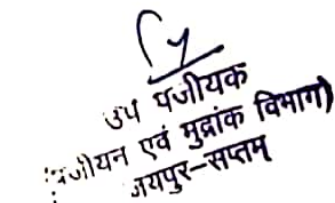 उप पंजीयक
पंजीयन एवं मुद्रांक विभाग)
जयपुर-सप्तम्